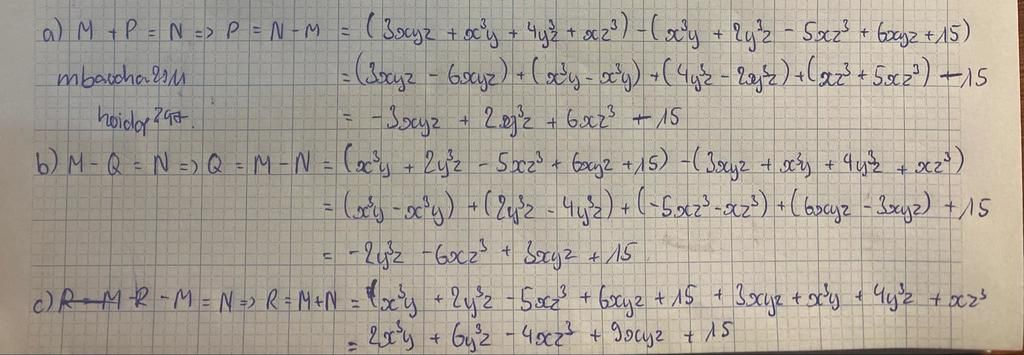 a) M + P = N => P = N - M = (3xyz + x³y + 4y³z + xz³) - (x³y + 2y³z - 5xz³ + 6xyz + 15)
mbaccha2911 = (3xyz - 6xyz) + (x³y - x³y) + (4y³z - 2y³z) + (xz³ + 5xz³) - 15
hoidap247. = -3xyz + 2y³z + 6xz³ - 15
b) M - Q = N => Q = M - N = (x³y + 2y³z - 5xz³ + 6xyz + 15) - (3xyz + x³y + 4y³z + xz³)
= (x³y - x³y) + (2y³z - 4y³z) + (-5xz³ - xz³) + (6xyz - 3xyz) + 15
= -2y³z - 6xz³ + 3xyz + 15
c) R - M = N => R = M + N = x³y + 2y³z - 5xz³ + 6xyz + 15 + 3xyz + x³y + 4y³z + xz³
= 2x³y + 6y³z - 4xz³ + 9xyz + 15